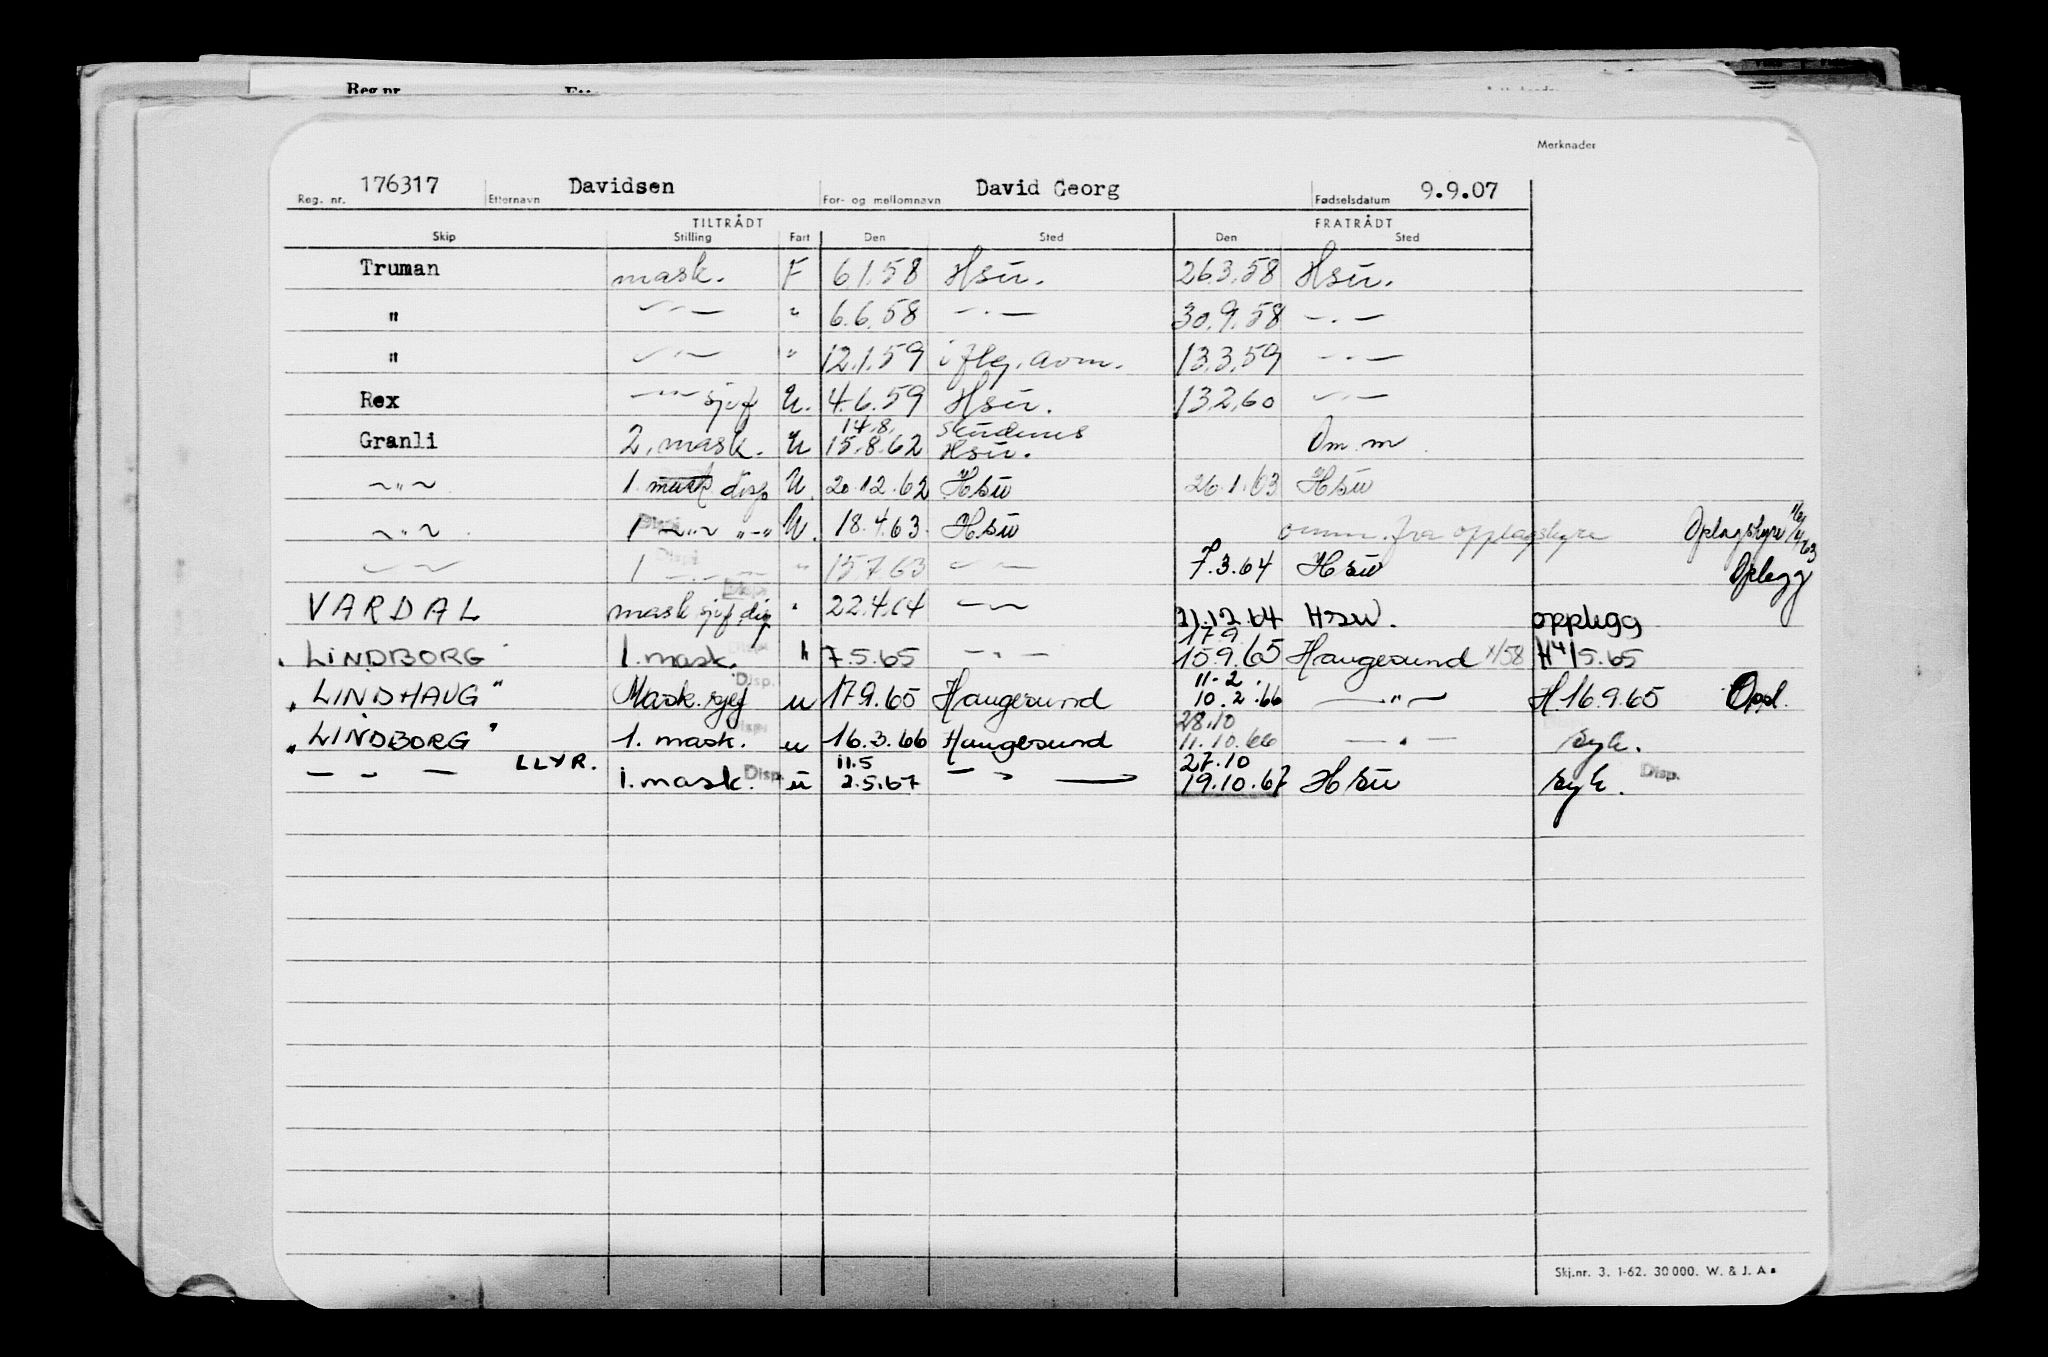 Reg. nr.
Merknader
Reg. nr. 176317 Etternavn Davidsen For- og mellomnavn David Georg Fødselsdatum 9.9.07
TILTRÅDT FRATRÅDT
Skip Stilling Fart Den Sted Den Sted
Truman mask. F 6.1.58 Hsu. 26.3.58 Hsu.
" — " — " 6.6.58 — . — 30.9.58 — . —
" — " — " 12.1.59 iflg. aom. 13.3.59 — . —
Rex — " — sjef U. 4.6.59 Hsu. 13.2.60 — " —
14.8. Skudenes
Granli 2. mask. U 15.8.62 Hsu. Om. m
~ " ~ 1. mask disp U. 20.12.62 Hsu 26.1.63 Hsu
~ " ~ 1 Disp ~ " ~ " - " U. 18.4.63. Hsu omm. fra opplagshyre Oplagshyre
~ " ~ 1 Disp — " — " 15.7.63 — " — 7.3.64 Hsu Oplegg
VARDAL mask sjef disp Disp. " 22.4.64 — " — 21.12.64 Hsu. opplegg
17.9
LINDBORG 1. mask. Disp. " 7.5.65 — " — 15.9.65 Haugesund 1/58 H 4/5.65
11-2.
"LINDHAUG" Mask. sjef Disp. u 17.9.65 Haugesund 10.2.66 — " — H. 16.9.65 Oppl.
28.10
"LINDBORG" 1. mask. Disp. u 16.3.66 Haugesund 11.10.66 — " — syk.
11.5 27.10
— " — LLYR. 1. mask. Disp. u 2.5.67 — " — 19.10.67 Hsu syk. Disp.
Skj.nr. 3. 1-62. 30 000. W. & J. A